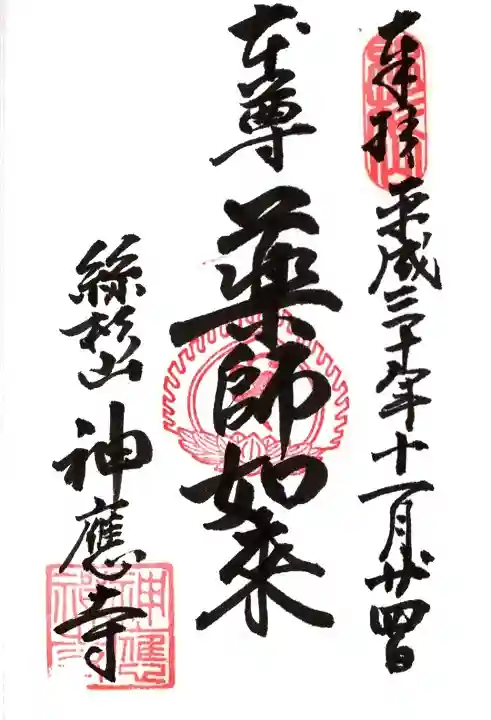 奉拝 平成三十年十一月廿四日
本尊
薬師如来
絲杉山 神應寺